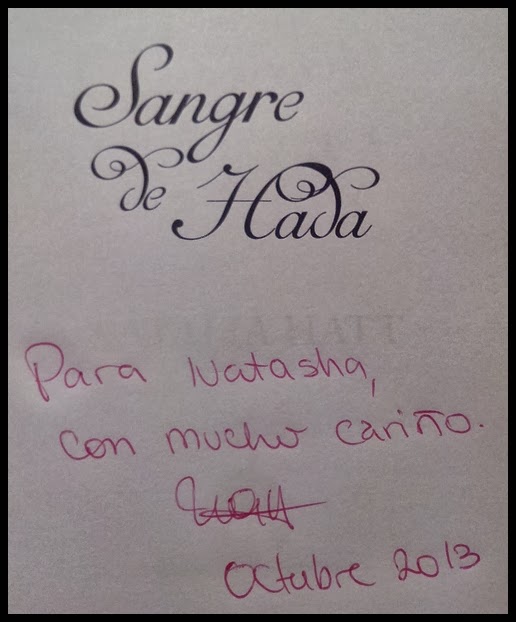 Sangre
de Hada
Para Natasha,
con mucho cariño.
Octubre 2013